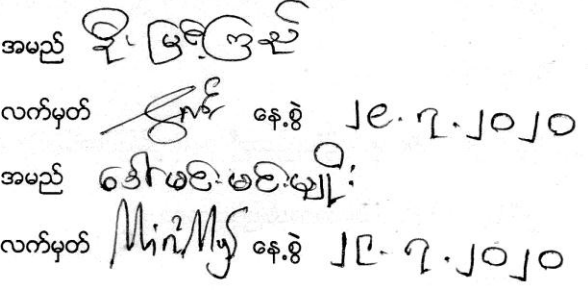 အမည် ဦးမြင့်ကြည်
လက်မှတ် နေ့စွဲ ၂၉.၇.၂၀၂၀
အမည် ဒေါ်မင်းမင်းမျိုး
လက်မှတ် နေ့စွဲ ၂၉.၇.၂၀၂၀